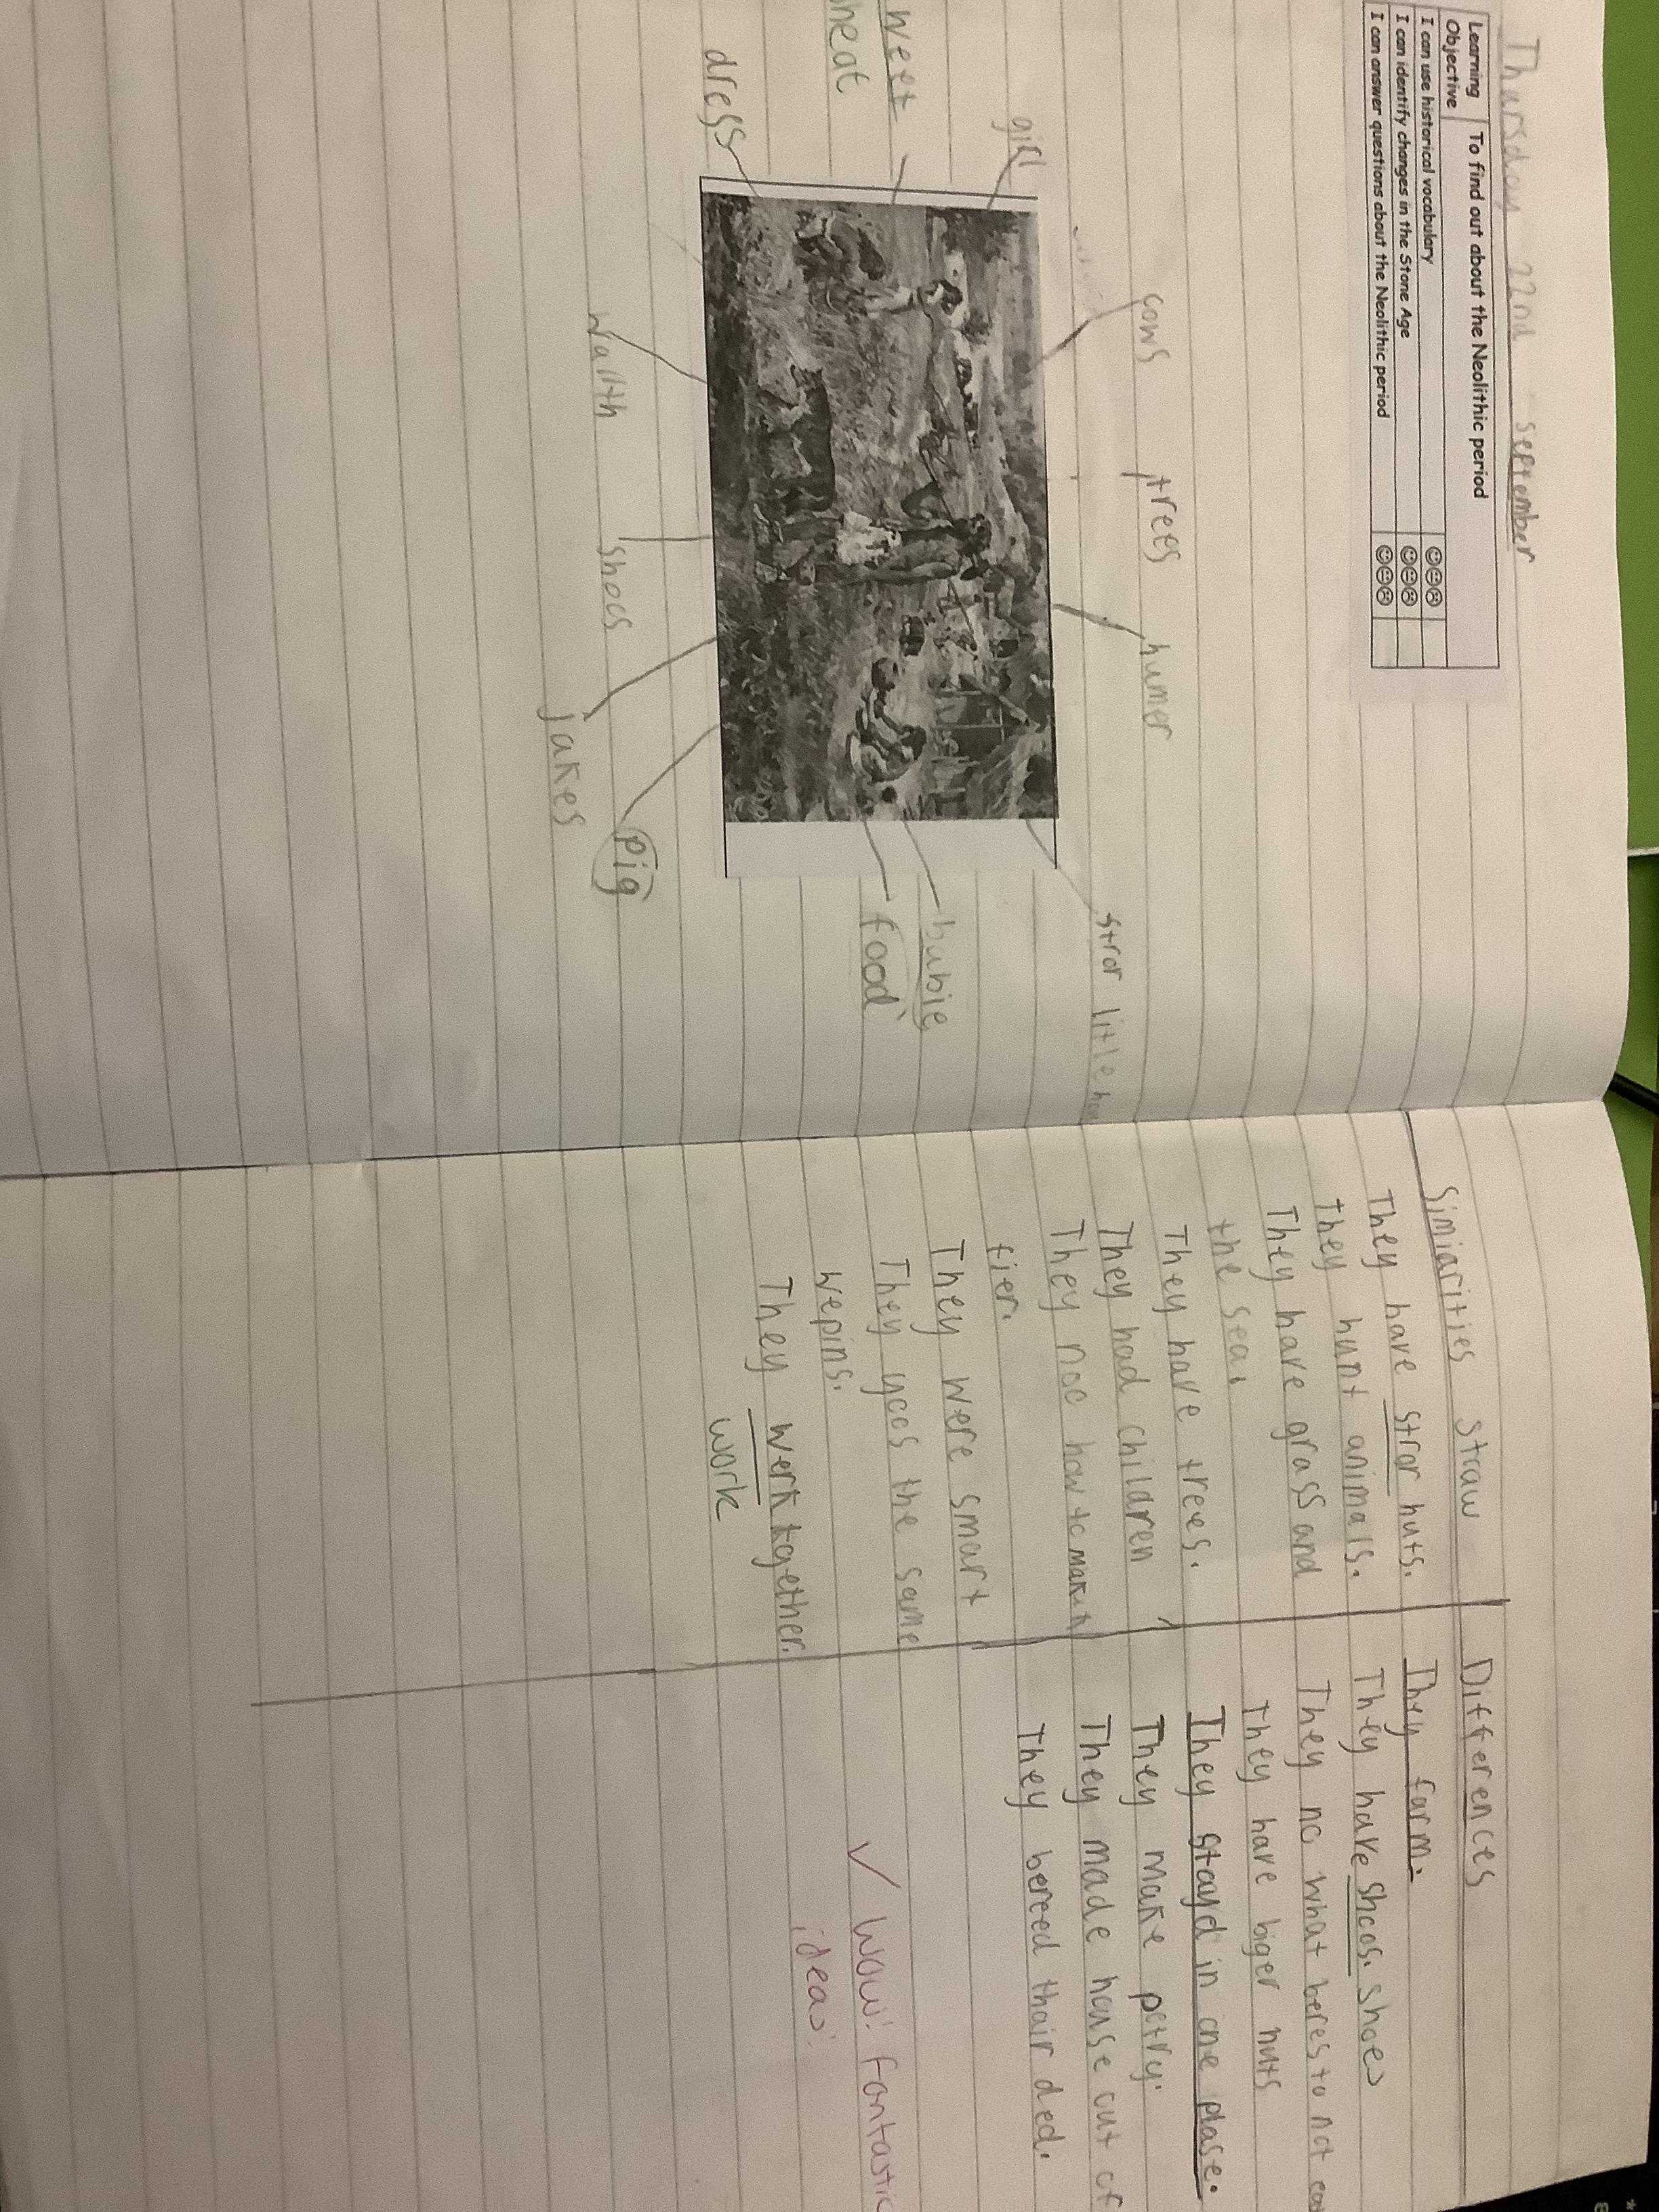 Thursday 22nd september
Learning Objective
To find out about the Neolithic period
I can use historical vocabulary
I can identify changes in the Stone Age
I can answer questions about the Neolithic period
cows
trees
humer
stror little
girl
weet
heat
dress
wallth
shoes
jakes
pig
food
babie
Similarities
straw
They have stror huts.
they hunt animals.
They have grass and
the sea.
They have trees.
They had children
They noe how to make
fier.
They were smart
They yoos the same
wepins.
They werk together.
work
Differences
They farm.
They have shoos. shoes
They no what beres to not eat
They have biger huts
They stayd in one plase.
They make potry.
They made house out of
They bereed thair ded.
✓ Wow! fantastic
ideas!